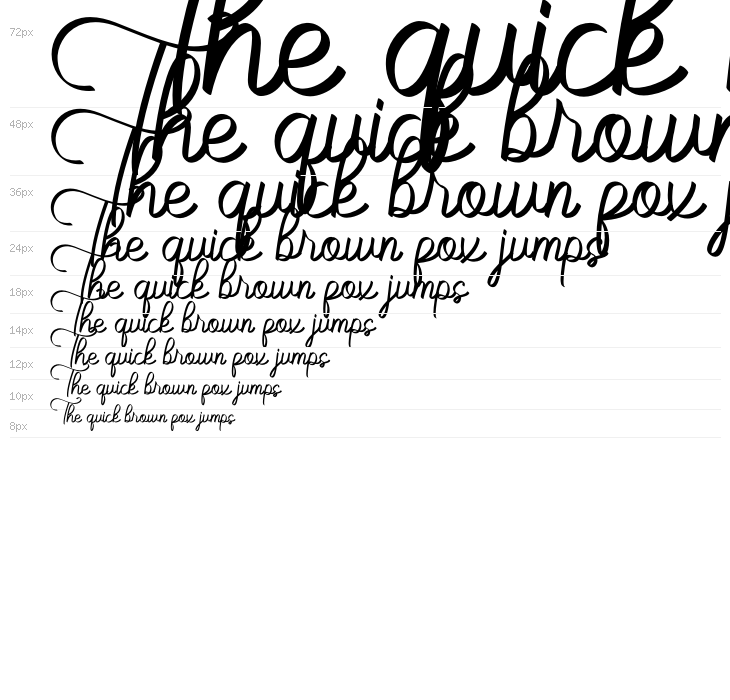 72px The quick
48px The quick brown
36px The quick brown pox
24px The quick brown pox jumps
18px The quick brown pox jumps
14px The quick brown pox jumps
12px The quick brown pox jumps
10px The quick brown pox jumps
8px The quick brown pox jumps